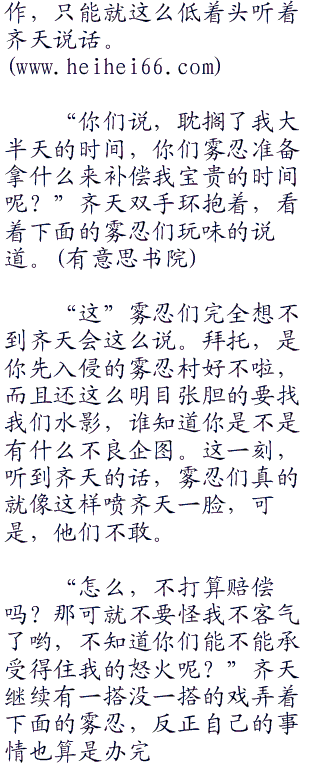 作，只能就这么低着头听着
齐天说话。
(www.heihei66.com)
“你们说，耽搁了我大
半天的时间，你们雾忍准备
拿什么来补偿我宝贵的时间
呢？”齐天双手环抱着，看
着下面的雾忍们玩味的说
道。(有意思书院)
“这”雾忍们完全想不
到齐天会这么说。拜托，是
你先入侵的雾忍村好不啦，
而且还这么明目张胆的要找
我们水影，谁知道你是不是
有什么不良企图。这一刻，
听到齐天的话，雾忍们真的
就像这样喷齐天一脸，可
是，他们不敢。
“怎么，不打算赔偿
吗？那可就不要怪我不客气
了哟，不知道你们能不能承
受得住我的怒火呢？”齐天
继续有一搭没一搭的戏弄着
下面的雾忍，反正自己的事
情也算是办完